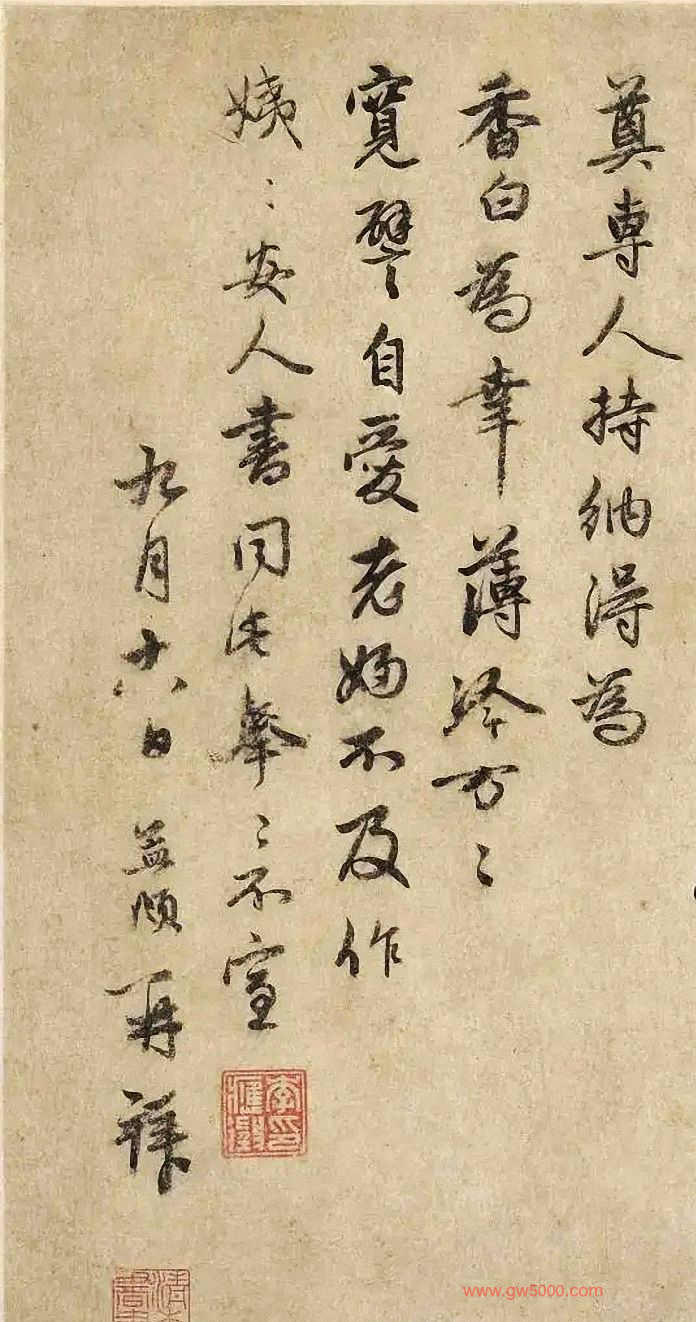 奠專人持納得為
香白為幸薄冷万〻
寬譬自愛老婦不及作
姨〻安人書同此舉〻不宣
九月十六日 益順再拜
www.gw5000.com